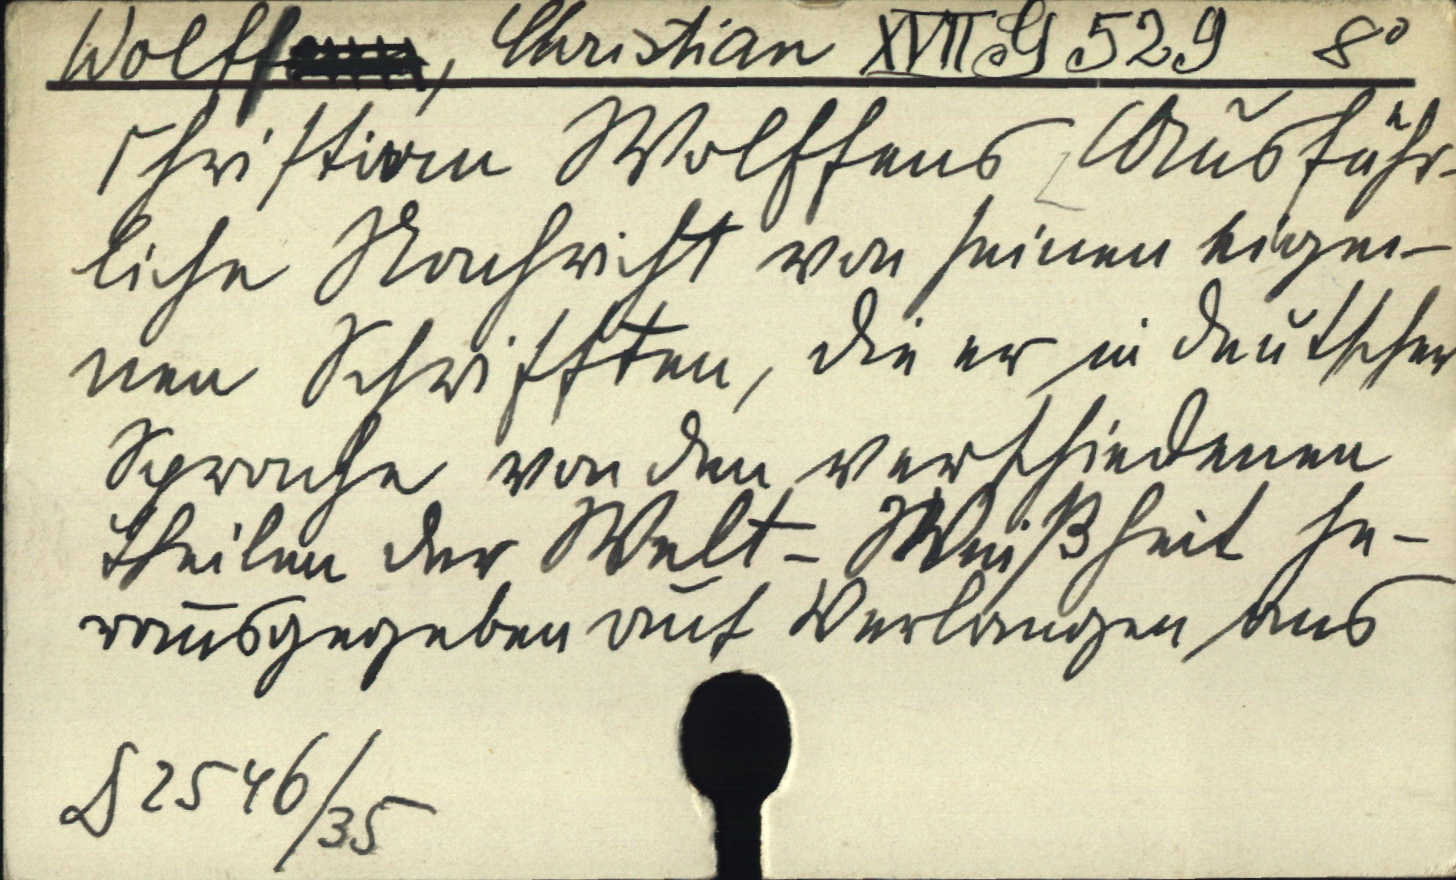 Wolff, Christian XVII G 529 8°
Christian Wolffens Ausführ-
liche Nachricht von seinen eige-
nen Schrifften, die er in deutscher
Sprache von den verschiedenen
Theilen der Welt-Weißheit he-
rausgegeben auf Verlangen ans
2546/35